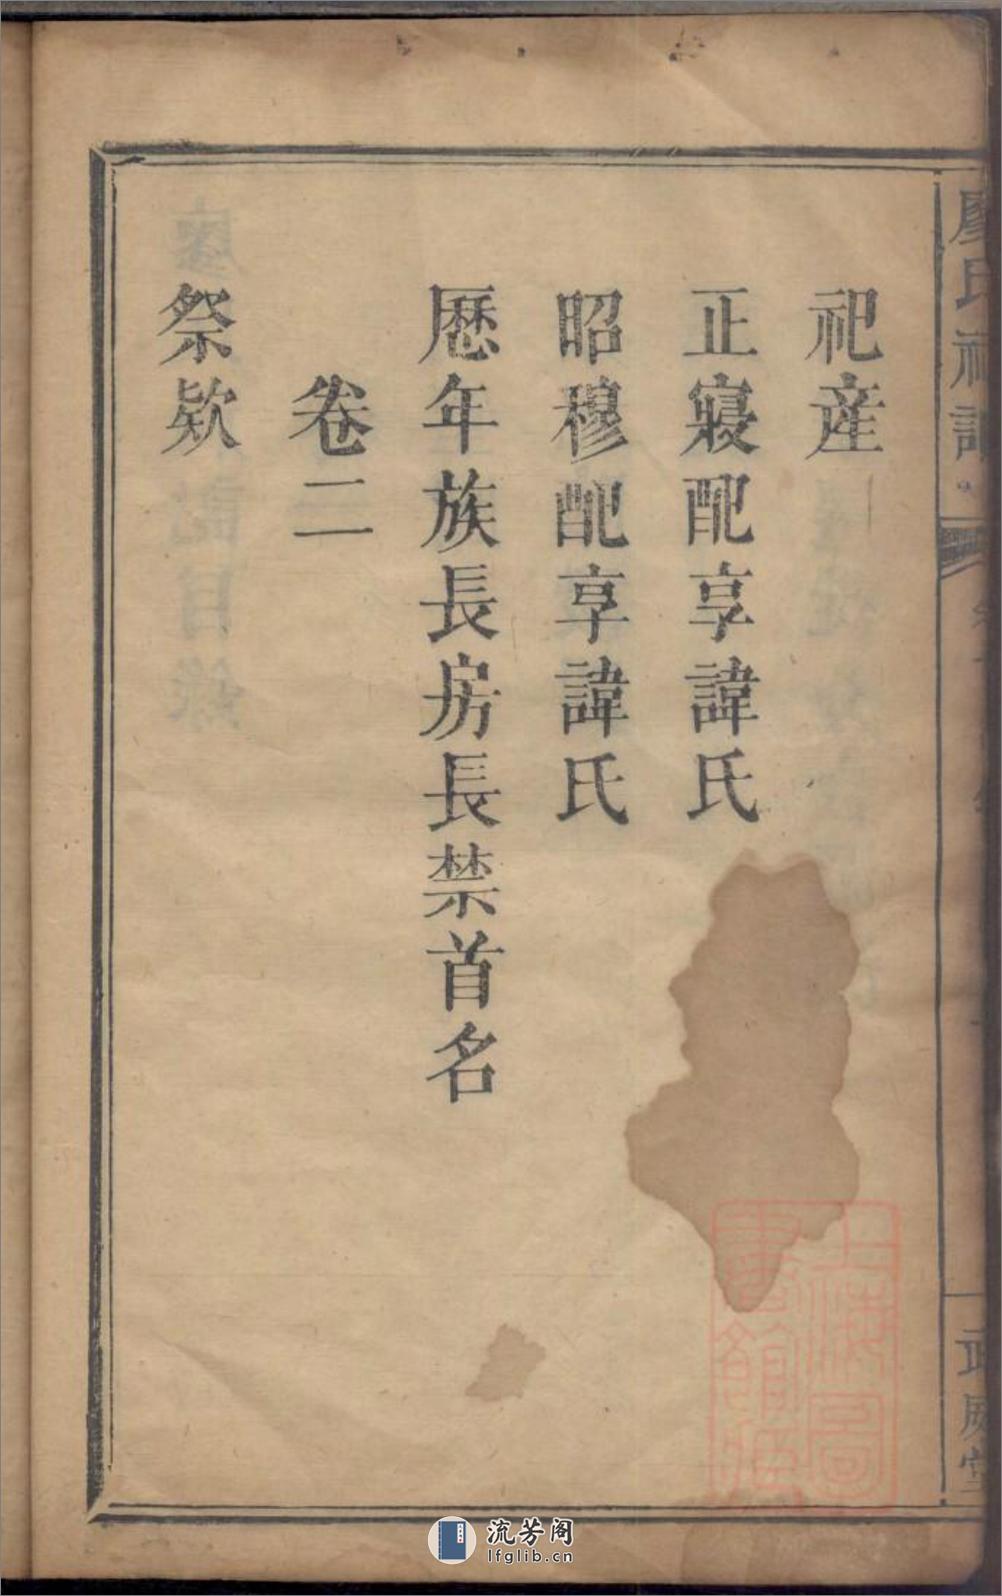 祀産
正寢配享諱氏
昭穆配享諱氏
歷年族長房長禁首名
卷二
祭欵
廖氏祠記
武威堂
上海圖書館藏
流芳阁
lfglib.cn